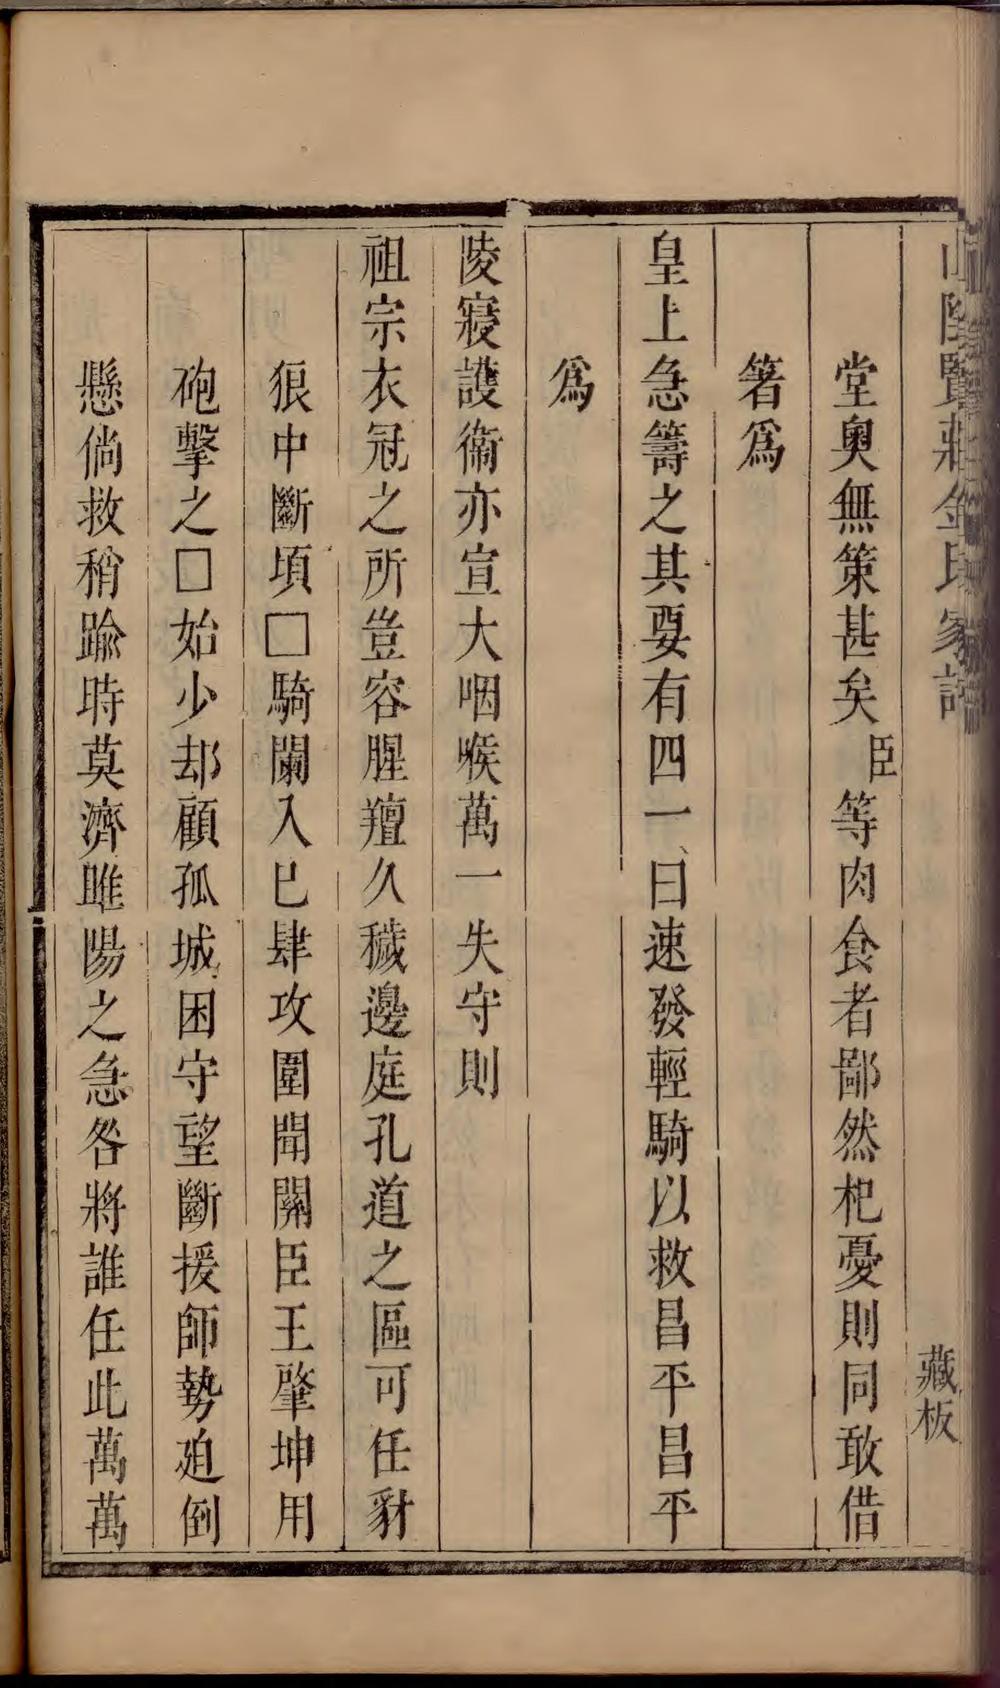 山陰賢莊金氏家譜
藏板
堂奧無策甚矣臣等肉食者鄙然杞憂則同敢借
箸爲
皇上急籌之其要有四一曰速發輕騎以救昌平昌平
爲
陵寢護衞亦宣大咽喉萬一失守則
祖宗衣冠之所豈容腥羶久穢邊庭孔道之區可任豺
狼中斷頃□騎闌入已肆攻圍聞關臣王肇坤用
砲擊之□始少却顧孤城困守望斷援師勢廹倒
懸倘救稍踰時莫濟睢陽之急咎將誰任此萬萬